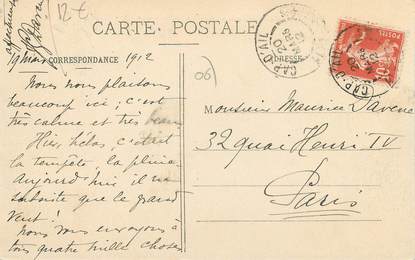 12 €
CARTE POSTALE
CORRESPONDANCE
ADRESSE
9 Mars 1912
Nous nous plaisons
beaucoup ici ; c'est
très calme et très beau
Hier, hélas, c'était
la tempête, la pluie
aujourd'hui il ne
subsiste que le grand
vent !
Nous vous envoyons à
tous quatre mille choses
affectueuses
06
CAP-D'AIL
POSTES
10
CAP-D'AIL
Monsieur Maurice Davene
32 quai Henri IV
Paris